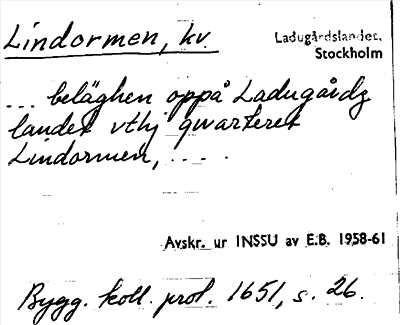 Lindormen, kv.
Ladugårdslandet,
Stockholm
... beläghen oppå Ladugårdz
landet vthj qwarteret
Lindormen, ....
Avskr. ur INSSU av E.B. 1958-61
Bygg. koll. prot. 1651, s. 26.